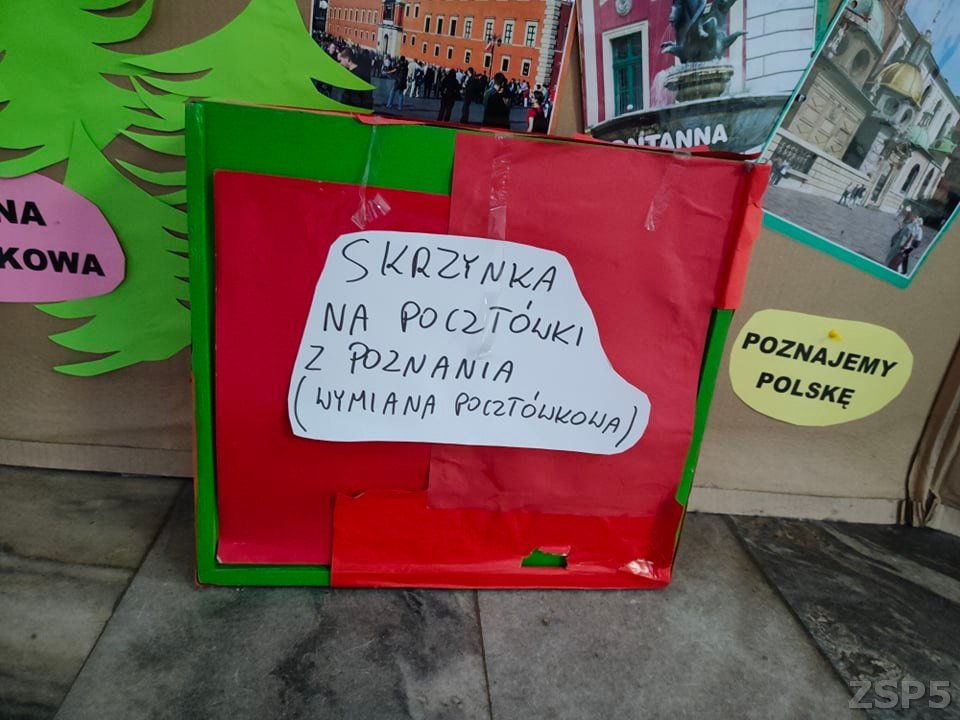 SKRZYNKA
NA POCZTÓWKI
Z POZNANIA
(WYMIANA POCZTÓWKOWA)
POZNAJEMY
POLSKĘ
ZSP5